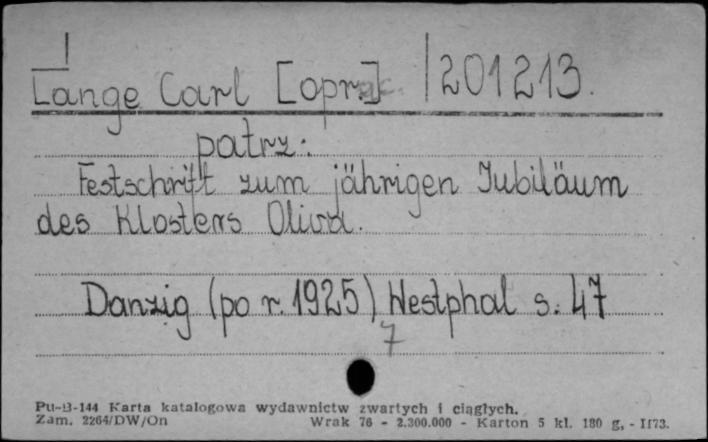 Lange Carl [oprac.] 201213.
patrz:
Festschrift zum jährigen Jubiläum
des Klosters Oliva.
Danzig (po r. 1925) Westphal s. 47
7
Pu-B-144 Karta katalogowa wydawnictw zwartych i ciągłych.
Zam. 2264/DW/On Wrak 76 - 2.300.000 - Karton 5 kl. 180 g, - II73.